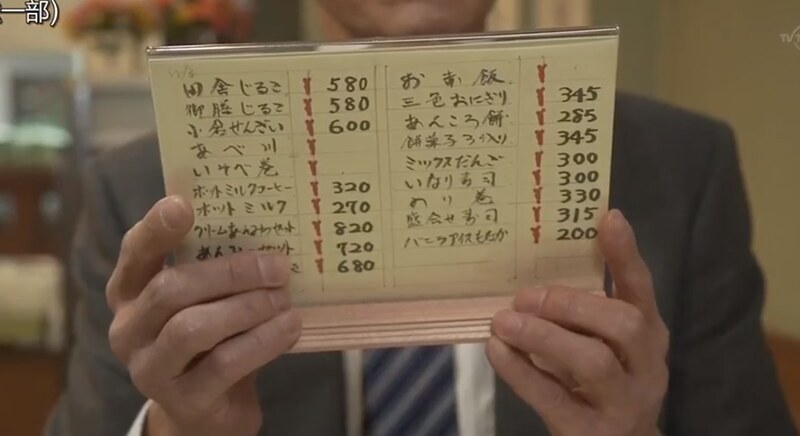 一部)
田舎じるこ ¥ 580
御膳じるこ ¥ 580
小倉ぜんざい ¥ 600
あべ川 ¥
いそべ巻 ¥
ホットミルクコーヒー ¥ 320
ホットミルク ¥ 270
クリームあんみつセット ¥ 820
あんみつセット ¥ 720
¥ 680
お赤飯 ¥
三色おにぎり ¥ 345
あんころ餅 ¥ 285
餅菓子3ヶ入り ¥ 345
ミックスだんご ¥ 300
いなり寿司 ¥ 300
のり巻 ¥ 330
盛合せ寿司 ¥ 315
バニラアイスもなか ¥ 200